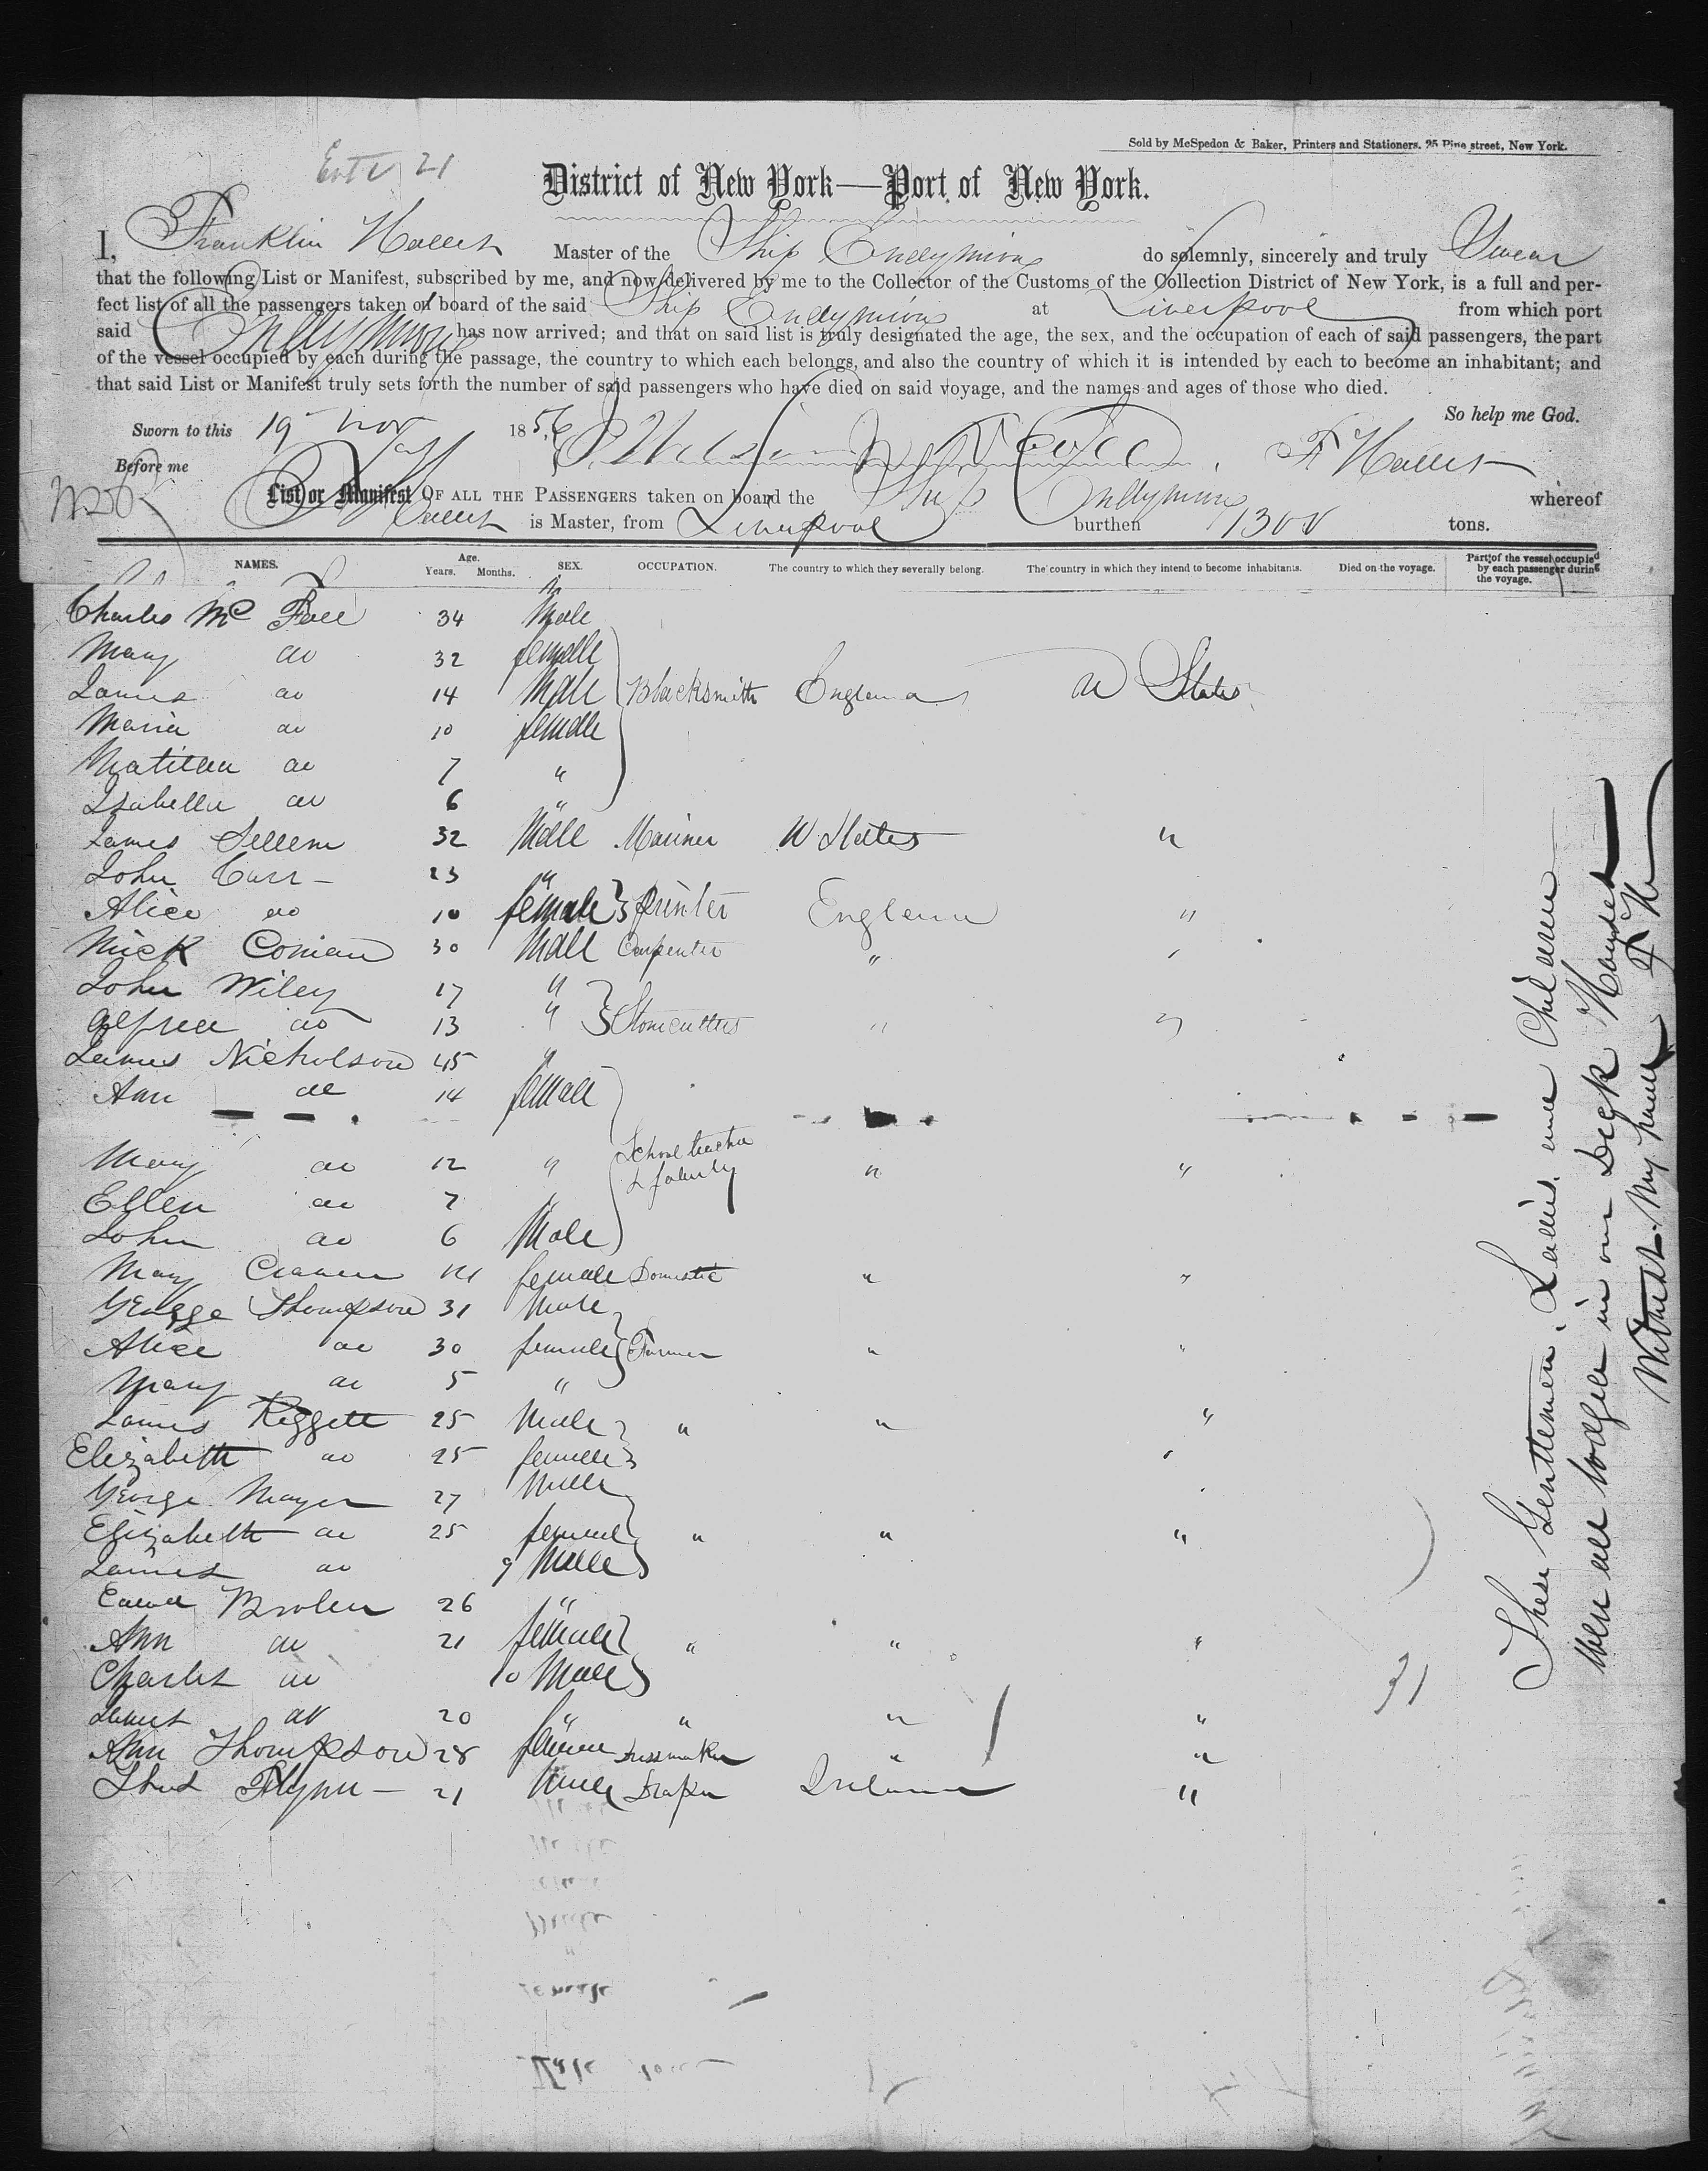 Sold by McSpedon & Baker, Printers and Stationers. 25 Pine street, New York.
District of New York—Port of New York.
I, Franklin Hallett Master of the Ship Endymion do solemnly, sincerely and truly Swear
that the following List or Manifest, subscribed by me, and now delivered by me to the Collector of the Customs of the Collection District of New York, is a full and per-
fect list of all the passengers taken on board of the said Ship Endymion at Liverpool from which port
said Endymion has now arrived; and that on said list is truly designated the age, the sex, and the occupation of each of said passengers, the part
of the vessel occupied by each during the passage, the country to which each belongs, and also the country of which it is intended by each to become an inhabitant; and
that said List or Manifest truly sets forth the number of said passengers who have died on said voyage, and the names and ages of those who died.
So help me God.
Sworn to this 19 Nov 1856 F Hallett
Before me
List or Manifest OF ALL THE PASSENGERS taken on board the Ship Endymion whereof
Hallett is Master, from Liverpool burthen 1300 tons.
NAMES. Age. Years. Months. SEX. OCCUPATION. The country to which they severally belong. The country in which they intend to become inhabitants. Died on the voyage. Part of the vessel occupied by each passenger during the voyage.
Charles Mc Fall 34 Male
Mary do 32 female
James do 14 Male Blacksmith England U States
Maria do 10 female
Matilda do 7 "
Isabella do 6 "
James Sellem 32 Male Mariner U States "
John Carr 23 "
Alice do 10 female Printer England "
Mick 30 Male Carpenter " "
John Wiley 17 "
Alfred do 13 " Stonecutters " "
James Nicholson 45 "
Ann do 14 female
Mary do 12 " School teacher & family " "
Ellen do 7 "
John do 6 Male
Mary female Domestic " "
George Thompson 31 Male
Alice do 30 female Farmer " "
Mary do 5 "
James Reggett 25 Male " " "
Elizabeth do 25 female "
George Mayer 27 Male
Elizabeth do 25 female " " "
James do 9 Male
Edwd 26 "
Ann do 21 female " " "
Charles do 10 Male
James do 20 " " " "
Ann Thompson 28 female Dressmaker " "
Thos Flynn 21 Male Draper Ireland "
31
These Gentlemen, Ladies and Children
were all lodged in our Deck House
Witness my hand F H